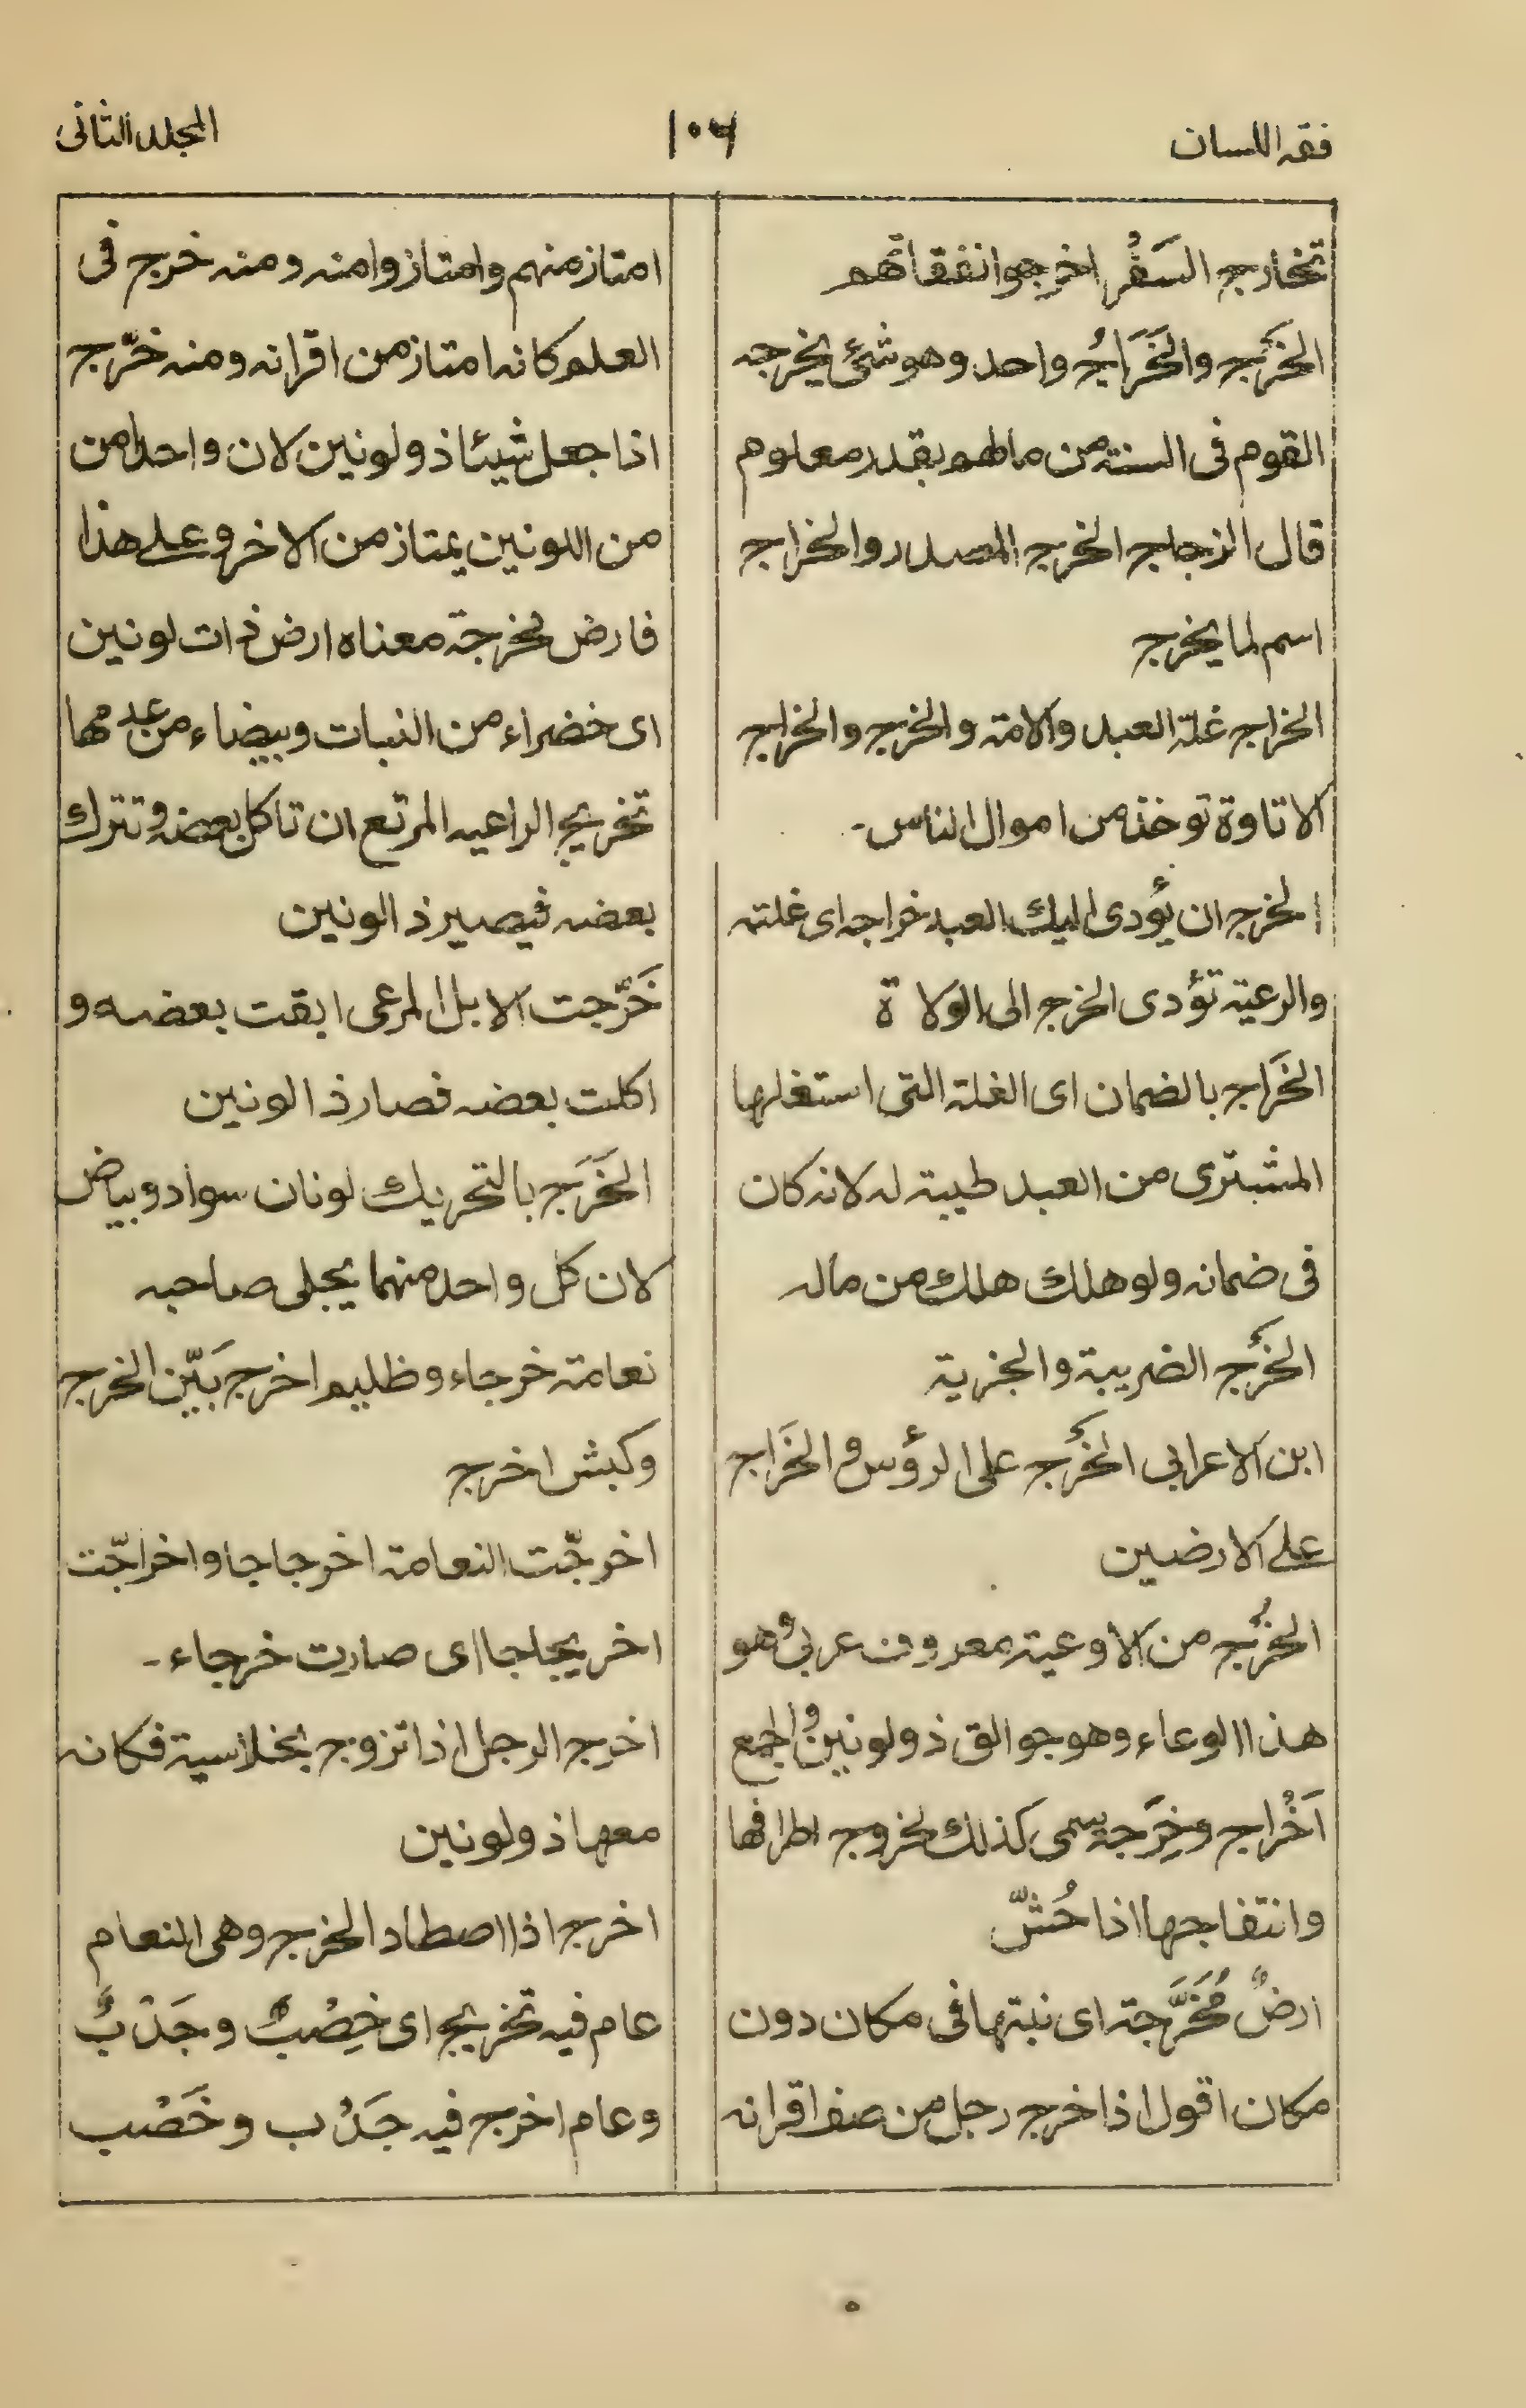 فقه اللسان
١٠٦
المجلد الثانی
تخارج السَفْرُ اخرجوا نفقاتهم
الخَرْج والخَرَاجُ واحد وهو شئ یخرجه
القوم فی السنة من مالهم بقدر معلوم
قال الزجاج الخرج المصدر والخراج
اسم لما یخرج
الخراج غلة العبد والامة والخرج والخراج
الاتاوة توخذ من اموال الناس-
الخرج ان یُؤدی الیك العبد خراجه ای غلته
والرعیة تؤدی الخرج الی الولاة
الخَراج بالضمان ای الغلة التی استغلها
المشتری من العبد طیبة له لانه کان
فی ضمانه ولو هلك هلك من ماله
الخَرْج الضریبة والجزیة
ابن الاعرابی الخَرْج علی الرؤس والخَراج
علی الارضین
الخُرْج من الاوعیة معروف عربیٌ هو
هذا الوعاء وهو جوالق ذو لونین والجمع
اَخْراج وخِرَجة سمی کذلك لخروج اطرافها
وانتفاجها اذا حُشّ
ارضٌ مُخَرَّجة ای نبتها فی مکان دون
مکان اقول اذا خرج رجل من صف اقرانه
امتاز منهم وامتازوا منه ومنه خرج فی
العلم کانه امتاز من اقرانه ومنه خرّج
اذا جعل شیئا ذو لونین لان واحدا من
من اللونین یمتاز من الاخر وعلی هذا
فارض مخرجة معناه ارض ذات لونین
ای خضراء من النبات وبیضاء من عدمها
تخریج الراعیه المرتع ان تاکل بعضه وتترك
بعضه فیصیر ذا لونین
خَرَّجت الابل المرعی ابقت بعضه و
اکلت بعضه فصار ذا لونین
الخَرَج بالتحریك لونان سواد وبیاض
لان کل واحد منهما یجلی صاحبه
نعامة خرجاء وظلیم اخرج بَیّن الخرج
وکبش اخرج
اخرجّت النعامة اخرجاجا واخراجّت
اخریجاجا ای صارت خرجاء-
اخرج الرجل اذا تزوج بخلاسیة فکانه
معها ذو لونین
اخرج اذا اصطاد الخرج وهی النعام
عام فیه تخریج ای خِصْبٌ وجَدْبٌ
وعام اخرج فیه جَدْب وخَصْب